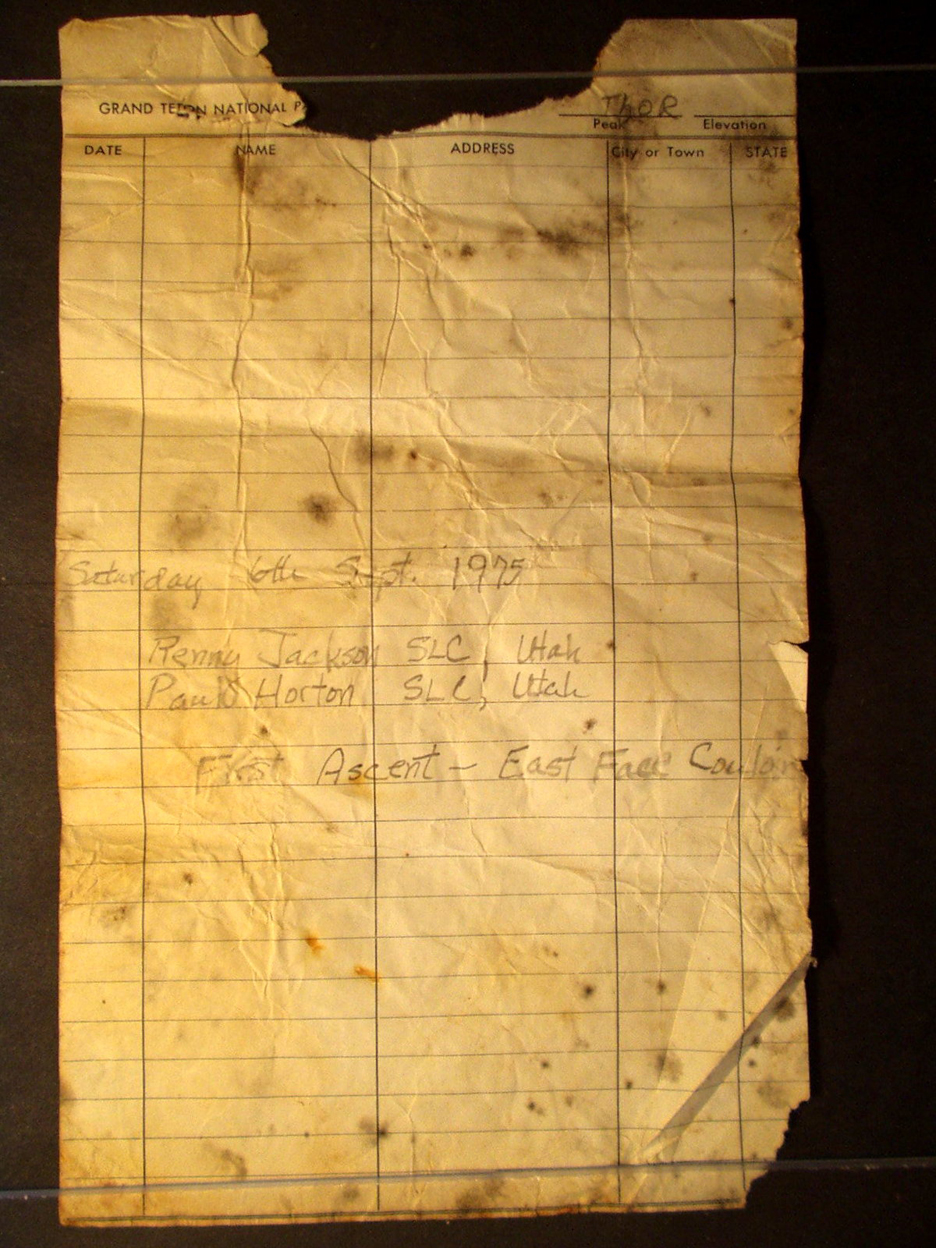 GRAND TETON NATIONAL P
ThOR
Peak Elevation
DATE NAME ADDRESS City or Town STATE
Saturday 6th Sept. 1975
Renny Jackson SLC, Utah
Paul Horton SLC, Utah
First Ascent — East Face Couloir